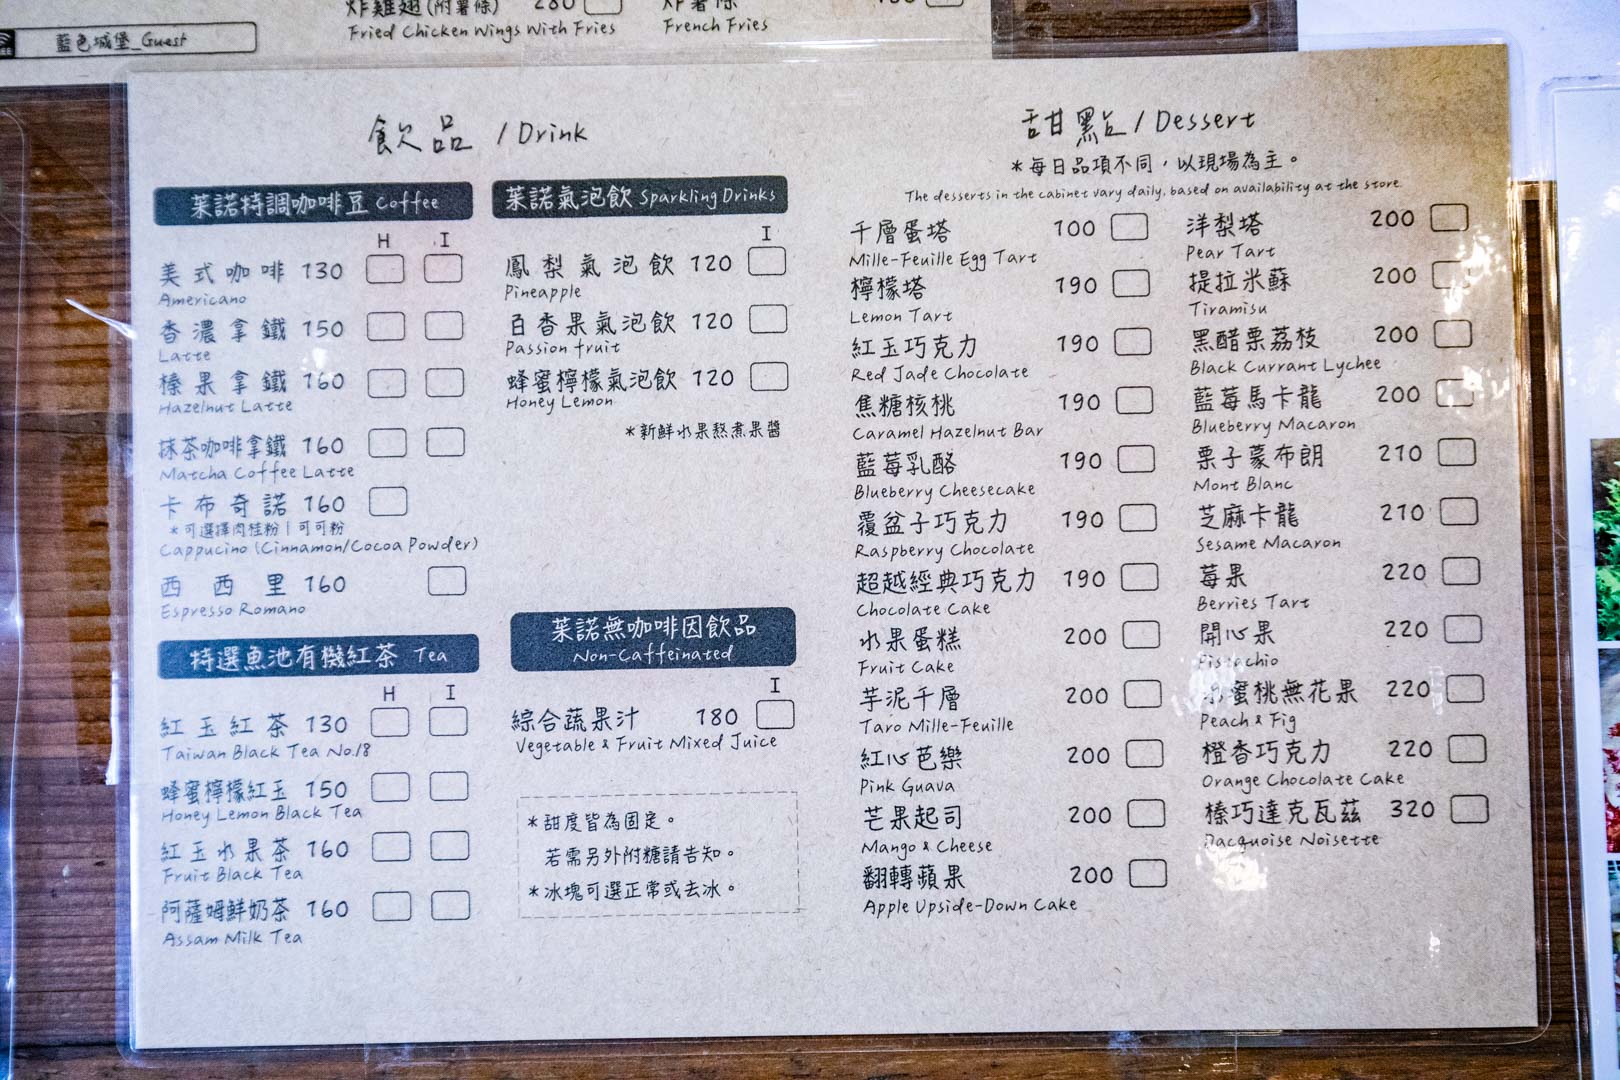 藍色城堡_Guest
炸雞翅(附薯條) 280
Fried Chicken Wings With Fries
French Fries
飲品 / Drink
茱諾特調咖啡豆 Coffee
H I
美式咖啡 130
Americano
香濃拿鐵 150
Latte
榛果拿鐵 160
Hazelnut Latte
抹茶咖啡拿鐵 160
Matcha Coffee Latte
卡布奇諾 160
*可選擇肉桂粉|可可粉
Cappucino (Cinnamon/Cocoa Powder)
西西里 160
Espresso Romano
特選魚池有機紅茶 Tea
H I
紅玉紅茶 130
Taiwan Black Tea No.18
蜂蜜檸檬紅玉 150
Honey Lemon Black Tea
紅玉水果茶 160
Fruit Black Tea
阿薩姆鮮奶茶 160
Assam Milk Tea
茱諾氣泡飲 Sparkling Drinks
I
鳳梨氣泡飲 120
Pineapple
百香果氣泡飲 120
Passion fruit
蜂蜜檸檬氣泡飲 120
Honey Lemon
*新鮮水果熬煮果醬
茱諾無咖啡因飲品
Non-Caffeinated
I
綜合蔬果汁 180
Vegetable & Fruit Mixed Juice
*甜度皆為固定。
若需另外附糖請告知。
*冰塊可選正常或去冰。
甜點 / Dessert
*每日品項不同，以現場為主。
The desserts in the cabinet vary daily, based on availability at the store
千層蛋塔 100
Mille-Feuille Egg Tart
檸檬塔 190
Lemon Tart
紅玉巧克力 190
Red Jade Chocolate
焦糖核桃 190
Caramel Hazelnut Bar
藍莓乳酪 190
Blueberry Cheesecake
覆盆子巧克力 190
Raspberry Chocolate
超越經典巧克力 190
Chocolate Cake
水果蛋糕 200
Fruit Cake
芋泥千層 200
Taro Mille-Feuille
紅心芭樂 200
Pink Guava
芒果起司 200
Mango & Cheese
翻轉蘋果 200
Apple Upside-Down Cake
洋梨塔 200
Pear Tart
提拉米蘇 200
Tiramisu
黑醋栗荔枝 200
Black Currant Lychee
藍莓馬卡龍 200
Blueberry Macaron
栗子蒙布朗 210
Mont Blanc
芝麻卡龍 210
Sesame Macaron
莓果 220
Berries Tart
開心果 220
Pistachio
水蜜桃無花果 220
Peach & Fig
橙香巧克力 220
Orange Chocolate Cake
榛巧達克瓦茲 320
Dacquoise Noisette